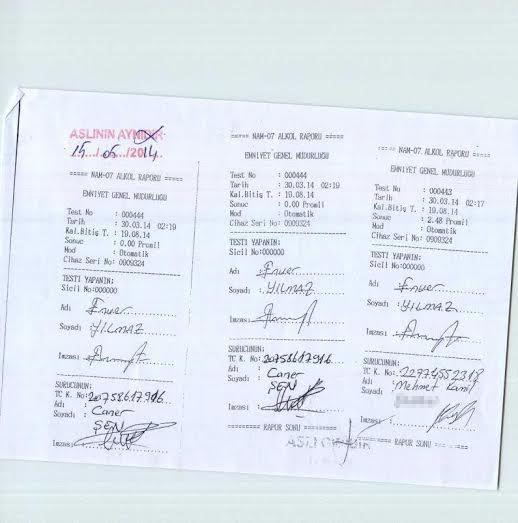 ASLININ AYNIDIR
15/05/2014
===== NAM-07 ALKOL RAPORU =====
EMNIYET GENEL MUDURLUGU
Test No : 000444
Tarih : 30.03.14 02:19
Kal.Bitiş T. : 19.08.14
Sonuc : 0.00 Promil
Mod : Otomatik
Cihaz Seri No: 0909324
TESTI YAPANIN:
Sicil No:000000
Adı : Enver
Soyadı : YILMAZ
Imzası :
SURUCUNUN:
TC K. No:20758617916
Adı : Caner
Soyadı : ŞEN
Imzası :
===== NAM-07 ALKOL RAPORU =====
EMNIYET GENEL MUDURLUGU
Test No : 000444
Tarih : 30.03.14 02:19
Kal.Bitiş T. : 19.08.14
Sonuc : 0.00 Promil
Mod : Otomatik
Cihaz Seri No: 0909324
TESTI YAPANIN:
Sicil No:000000
Adı : Enver
Soyadı : YILMAZ
Imzası :
SURUCUNUN:
TC K. No:20758617916
Adı : Caner
Soyadı : ŞEN
Imzası :
===== RAPOR SONU =====
===== NAM-07 ALKOL RAPORU =====
EMNIYET GENEL MUDURLUGU
Test No : 000443
Tarih : 30.03.14 02:17
Kal.Bitiş T. : 19.08.14
Sonuc : 2.48 Promil
Mod : Otomatik
Cihaz Seri No: 0909324
TESTI YAPANIN:
Sicil No:000000
Adı : Enver
Soyadı : YILMAZ
Imzası :
SURUCUNUN:
TC K. No:22974552318
Adı : Mehmet Kamil
Soyadı :
Imzası :
===== RAPOR SONU =====